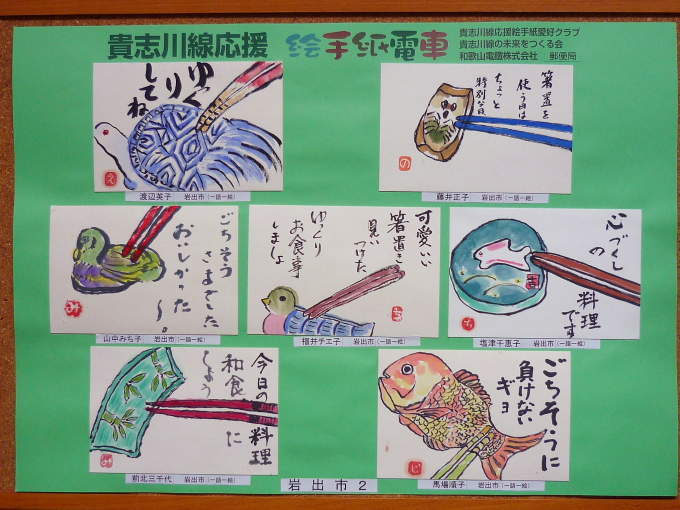 貴志川線応援 絵手紙電車
貴志川線応援絵手紙愛好クラブ
貴志川線の未来をつくる会
和歌山電鐵株式会社 郵便局
ゆっく
りり
してね
え
渡辺英子 岩出市(一語一絵)
箸置を
使う日は
ちょっと
特別な日
の
藤井正子 岩出市(一語一絵)
ごちそう
さまでした
おいしかった
〜。
み
山中みち子 岩出市(一語一絵)
可愛いい
箸置き
見い
つけた
ゆっくり
お食事
しましょ
ち
福井チエ子 岩出市(一語一絵)
心づくし
の
料理
です
ち
塩津千恵子 岩出市(一語一絵)
今日の料理
和食に
しよう
み
前北三千代 岩出市(一語一絵)
ごちそうに
負けない
ギョ
じ
馬場順子 岩出市(一語一絵)
岩出市2